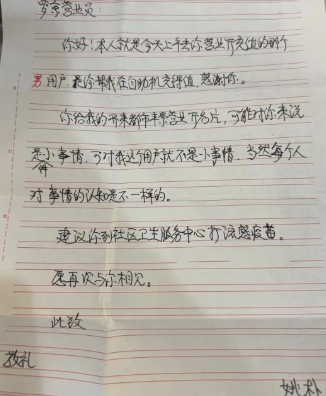 罗京营业员：
你好！本人就是今天上午去你营业厅充值的那个
男用户，是你帮我在自动机充得值，感谢你。
你给我的开来都市丰景营业厅名片，可能对你来说
是件小事情，可对我这个用户就不是小事情，当然每个人
对事情的认知是不一样的。
建议你到社区卫生服务中心打流感疫苗。
愿再次与你相见。
此致
敬礼
姚朴